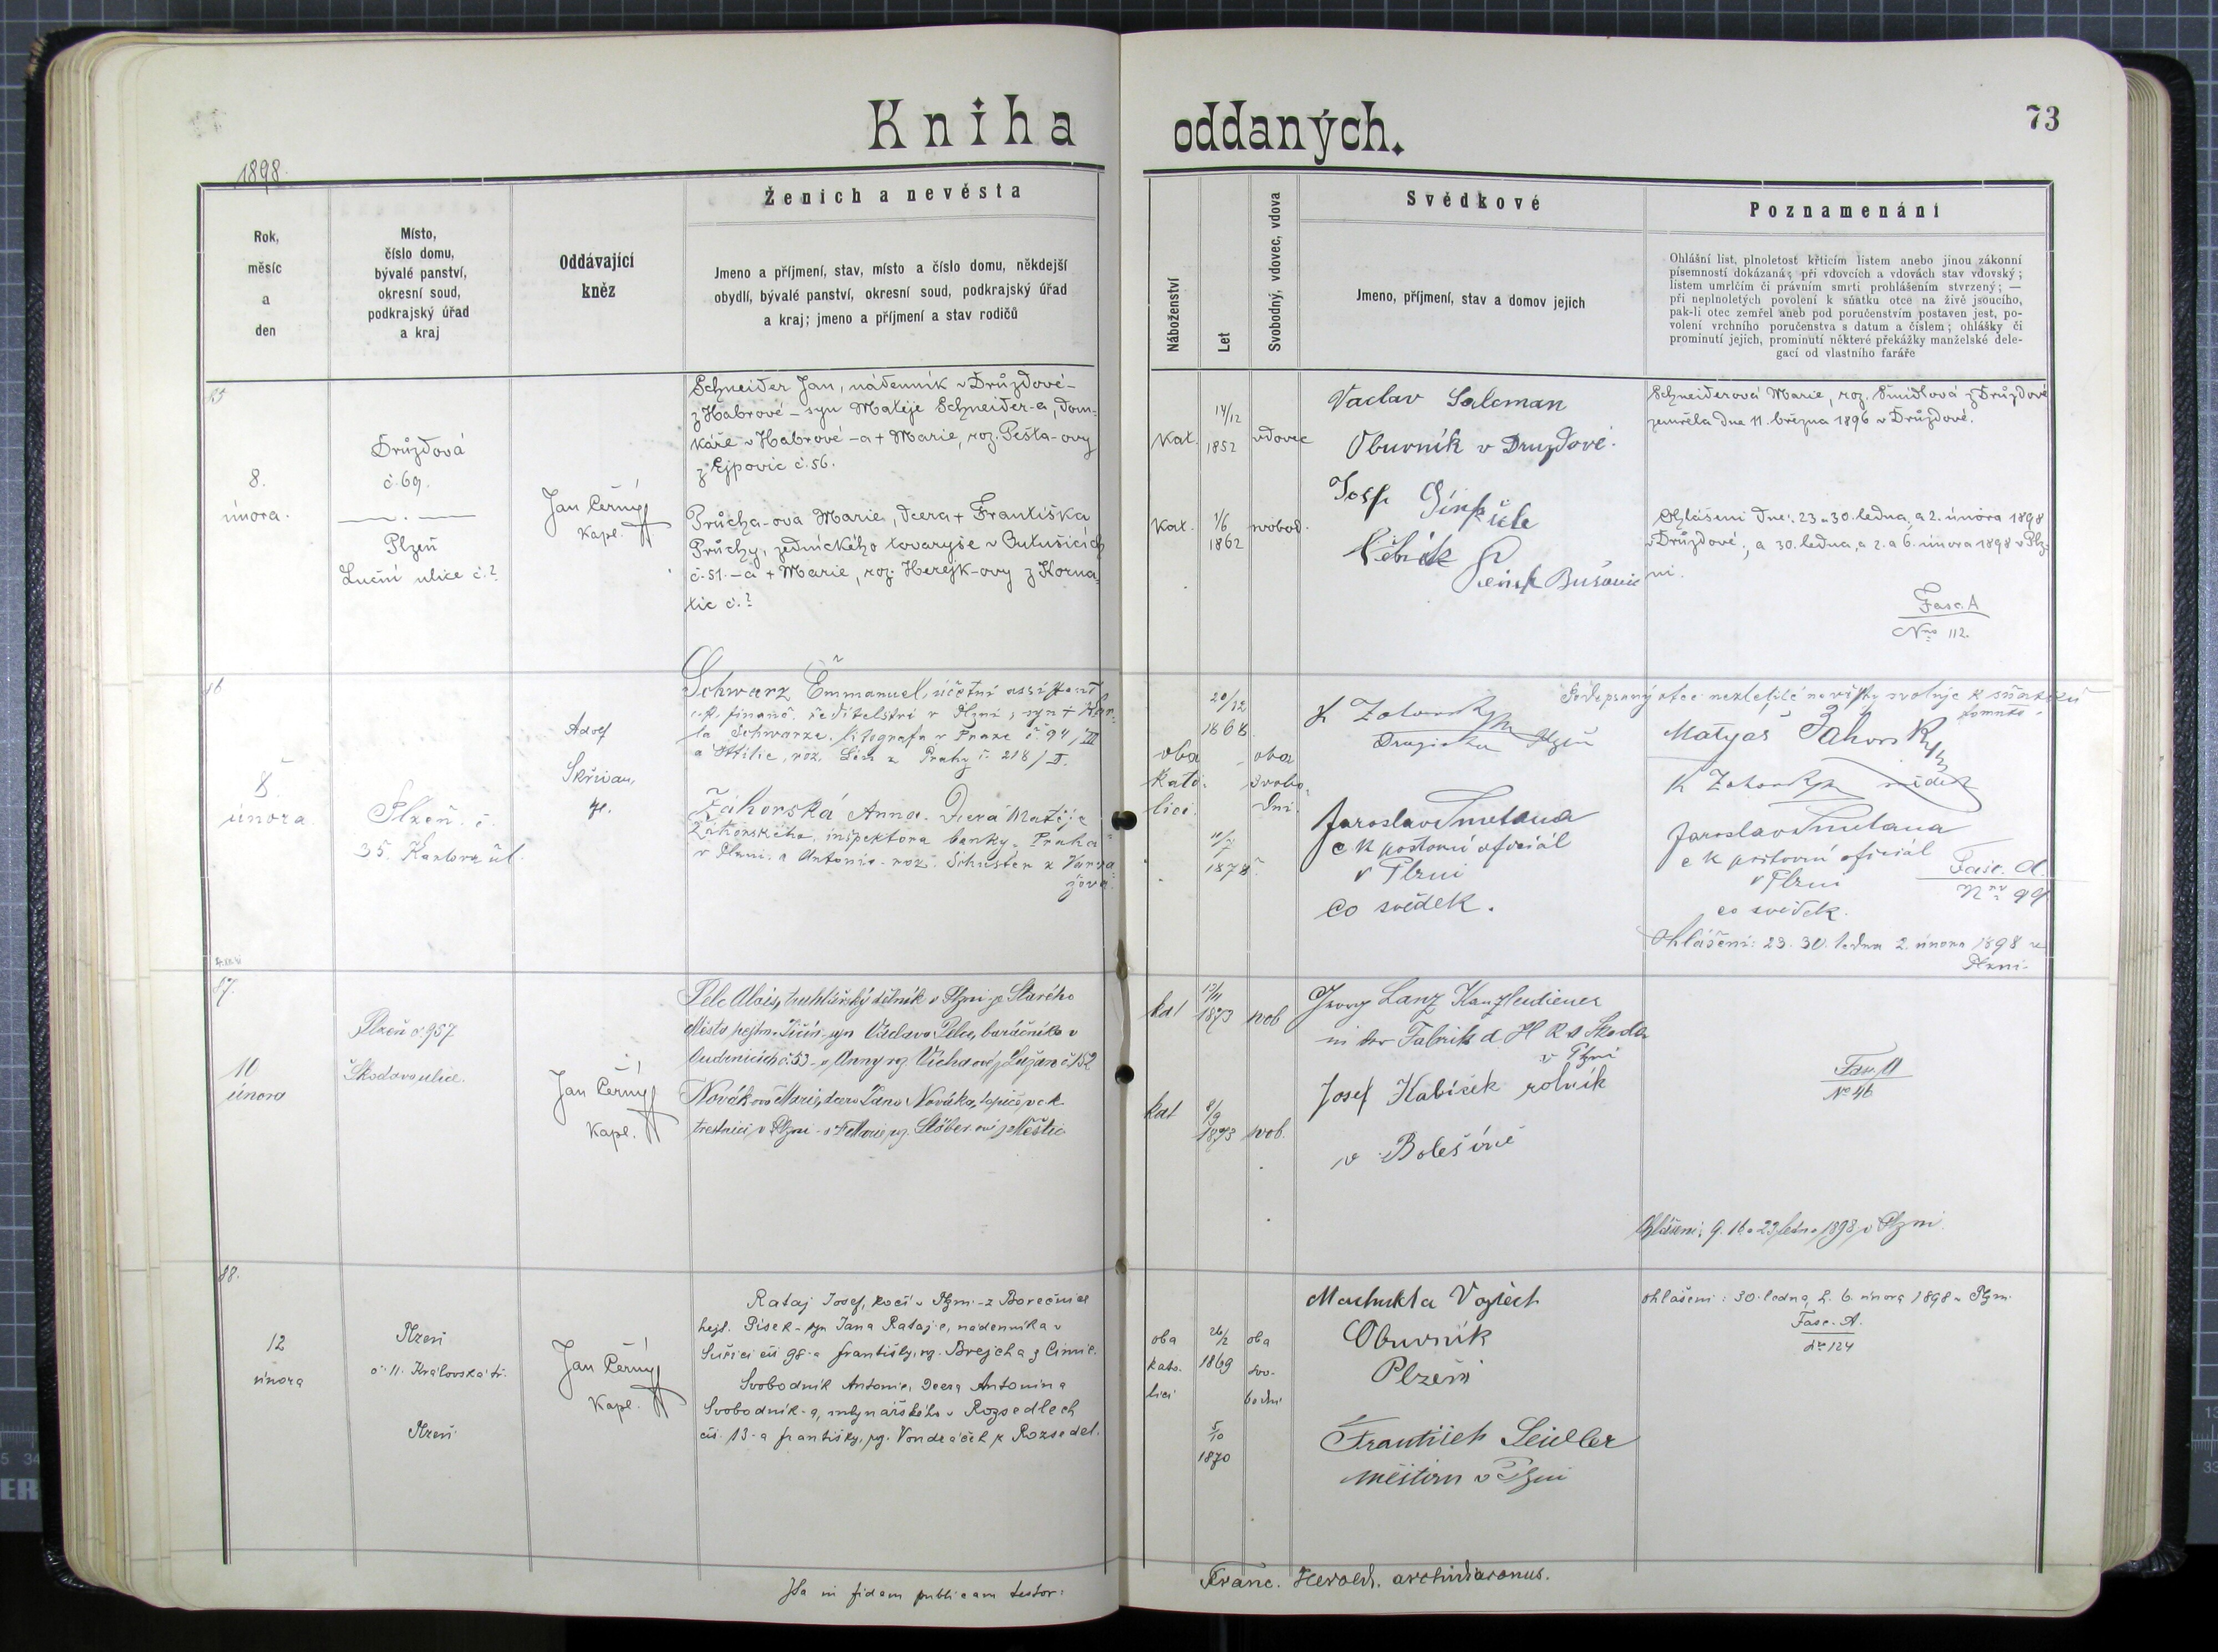 Kniha oddaných.
73
1898.
Rok,
měsíc
a
den
Místo,
číslo domu,
bývalé panství,
okresní soud,
podkrajský úřad
a kraj
Oddávající
kněz
Ženich a nevěsta
Jmeno a příjmení, stav, místo a číslo domu, někdejší
obydlí, bývalé panství, okresní soud, podkrajský úřad
a kraj; jmeno a příjmení a stav rodičů
Náboženství
Let
Svobodný, vdovec, vdova
Svědkové
Jmeno, příjmení, stav a domov jejich
Poznamenání
Ohlášní list, plnoletost křticím listem anebo jinou zákonní
písemností dokázaná; při vdovcích a vdovách stav vdovský;
listem umrlčím či právním smrti prohlášením stvrzený; —
při neplnoletých povolení k sňatku otce na živě jsoucího,
pak-li otec zemřel aneb pod poručenstvím postaven jest, po-
volení vrchního poručenstva s datum a číslem; ohlášky či
prominutí jejich, prominutí některé překážky manželské dele-
gací od vlastního faráře
8.
února.
Družďová
č. 69.
Plzeň
Luční ulice č. ?
Jan Černý
kapl.
Schneider Jan, nádenník v Družďové -
z Habrové - syn Matěje Schneider-a, dom-
káře v Habrové - a + Marie, roz. Pešta-ovy
z Ejpovic č. 56.
Průcha-ova Marie, dcera + Františka
Průchy, zednického tovaryše v
č. 51. - a + Marie, roz. Herejk-ovy z Korna-
tic č. ?
Kat.
14/12
1852
vdovec
Kat.
1/6
1862
svobod.
Vaclav Salcman
Obuvník v Druzdové.
Josef
Schneiderová Marie, roz. Šmídlová z Družďové
zemřela dne 11. března 1896 v Družďové.
Ohlášení dne: 23. a 30. ledna, a 2. února 1898
v Družďové, a 30. ledna, a 2. a 6. února 1898 v Plz-
ni.
Fasc. A
Nro 112.
8.
února.
Plzeň. č.
35. Karlova ul.
Adolf
Skřivan,
Schwarz Emmanuel, účetní assistent
c. k. finanč. ředitelství v Plzni, syn + Kar-
la Schwarze, litografa v Praze č. 94/III
a Ottilie, roz. z Prahy č. 218/I.
Záhorská Anna. Dcera Matěje
Záhorského, inspektora banky "Praha"
v Plzni, a Antonie roz. Schuster z
oba
kato-
lici.
20/12
1868
11/7
1878.
oba
svobo-
dni.
Plzeň
Jaroslav Smetana
c k poštovní oficiál
v Plzni
co svědek.
Podepsaný otec nezletilé nevěsty svoluje k sňatku
tomuto.
Matyáš Záhorský
svědek
Jaroslav Smetana
c k poštovní oficiál
v Plzni
co svědek.
Fasc. A.
Nro 99
Ohlášení: 23. 30. ledna 2. února 1898 v
Plzni.
87.
10
února
Plzeň č. 957
Škodova ulice.
Jan Černý
Kapl.
Pelc Alois, truhlářský dělník v Plzni - ze Starého
Města hejtm. Jičín - syn Václava Pelce, baráčníka v
č. 53 - a Anny roz. z Lužan č. 152
Novákova Marie, dcera Jana Nováka, topiče v c. k.
trestnici v Plzni - a + Marie roz. z Měštic
kat
13/11
1873
svob
kat
8/9
1873
svob.
Georg Lanz Kanzleidiener
in der Fabrik d H R v Skoda
v Plzni
Josef Kabíček rolník
v Bolešině
Fasc. A
No 46
Ohlášení: 9. 16. a 23. ledna 1898 v Plzni.
88.
12
února
Plzeň
č. 11. Královská tř.
Plzeň.
Jan Černý
Kapl.
Rataj Josef, kočí v Plzni - z Borečnice
hejt. Písek - syn Jana Rataje, nádenníka v
Sušici čís 98 - a Františky, roz. Brejcha z Čimic.
Svobodník Antonie, dcera Antonína
Svobodník-a, mlynářského v Rozsedlech
čís. 13 - a Františky, roz. Vondráček z Rozsedel.
oba
kato-
lici
26/2
1869
5/10
1870
oba
svo-
bodni
Machulda Vojtěch
Obuvník
Plzeň
František Seidler
měšťan v Plzni
Ohlášení: 30. ledna, 2. 6. února 1898 v Plzni.
Fasc. A.
No 124
Ita in fidem publicam testor:
Franc. Herold. archidiaconus.